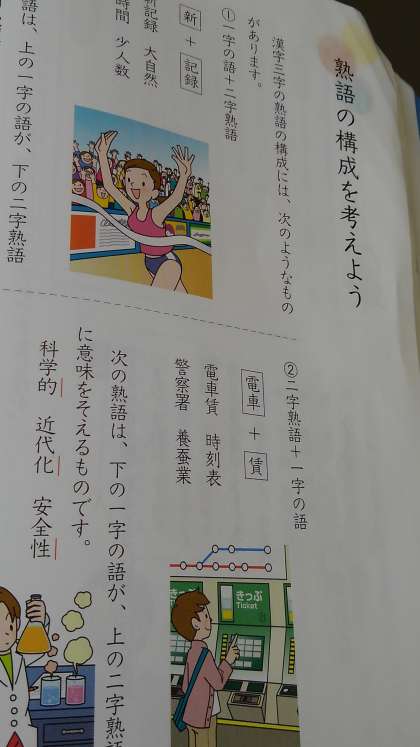 熟語の構成を考えよう
漢字三字の熟語の構成には、次のようなもの
があります。
①一字の語＋二字熟語
新＋記録
新記録 大自然
時間 少人数
語は、上の一字の語が、下の二字熟語
②二字熟語＋一字の語
電車＋賃
電車賃 時刻表
警察署 養蚕業
次の熟語は、下の一字の語が、上の二字熟語
に意味をそえるものです。
科学的 近代化 安全性
きっぷ
きっぷ
Ticket